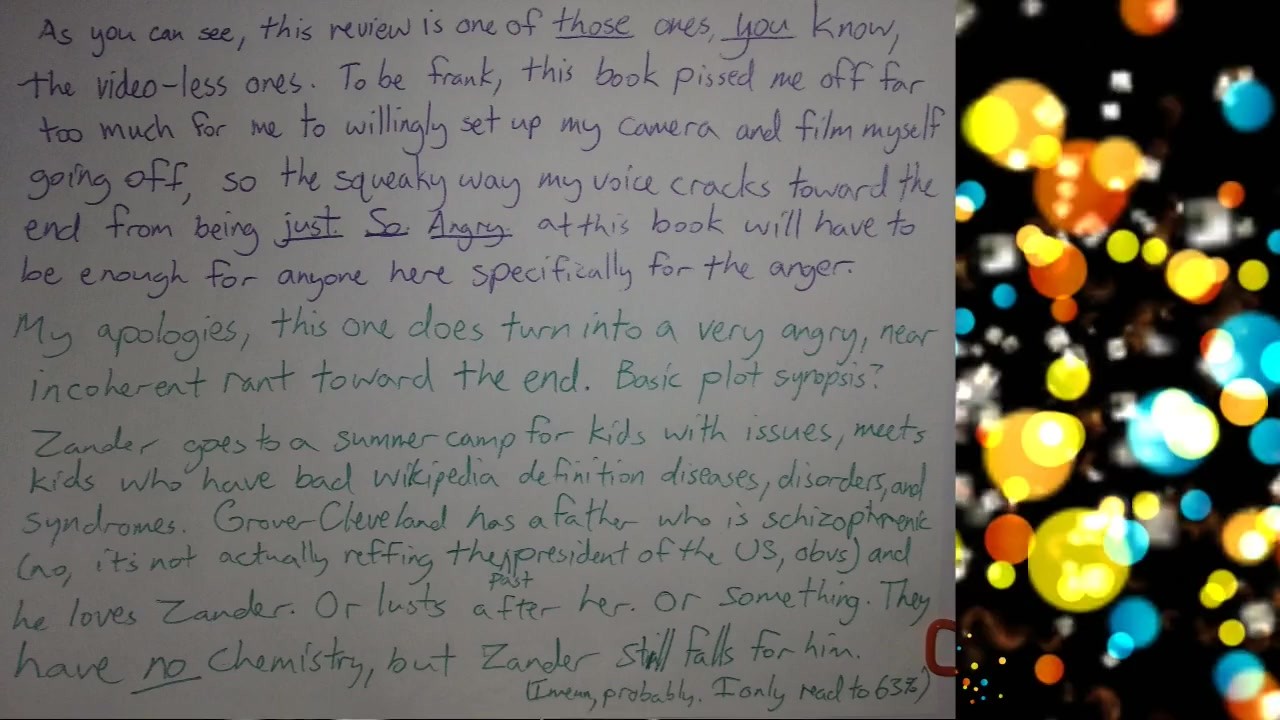 As you can see, this review is one of those ones, you know,
the video-less ones. To be frank, this book pissed me off far
too much for me to willingly set up my camera and film myself
going off, so the squeaky way my voice cracks toward the
end from being just. So. Angry. at this book will have to
be enough for anyone here specifically for the anger.
My apologies, this one does turn into a very angry, near
incoherent rant toward the end. Basic plot synopsis?
Zander goes to a summer camp for kids with issues, meets
kids who have bad wikipedia definition diseases, disorders, and
syndromes. Grover Cleveland has a father who is schizophrenic
(no, it's not actually reffing the past president of the US, obvs) and
he loves Zander. Or lusts after her. Or something. They
have no Chemistry, but Zander still falls for him.
(I mean, probably. I only read to 63%)